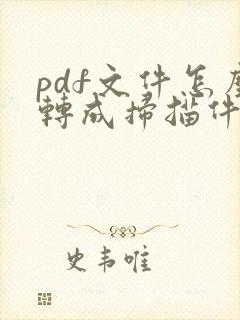 pdf文件怎麼
轉成掃描件
史韦唯